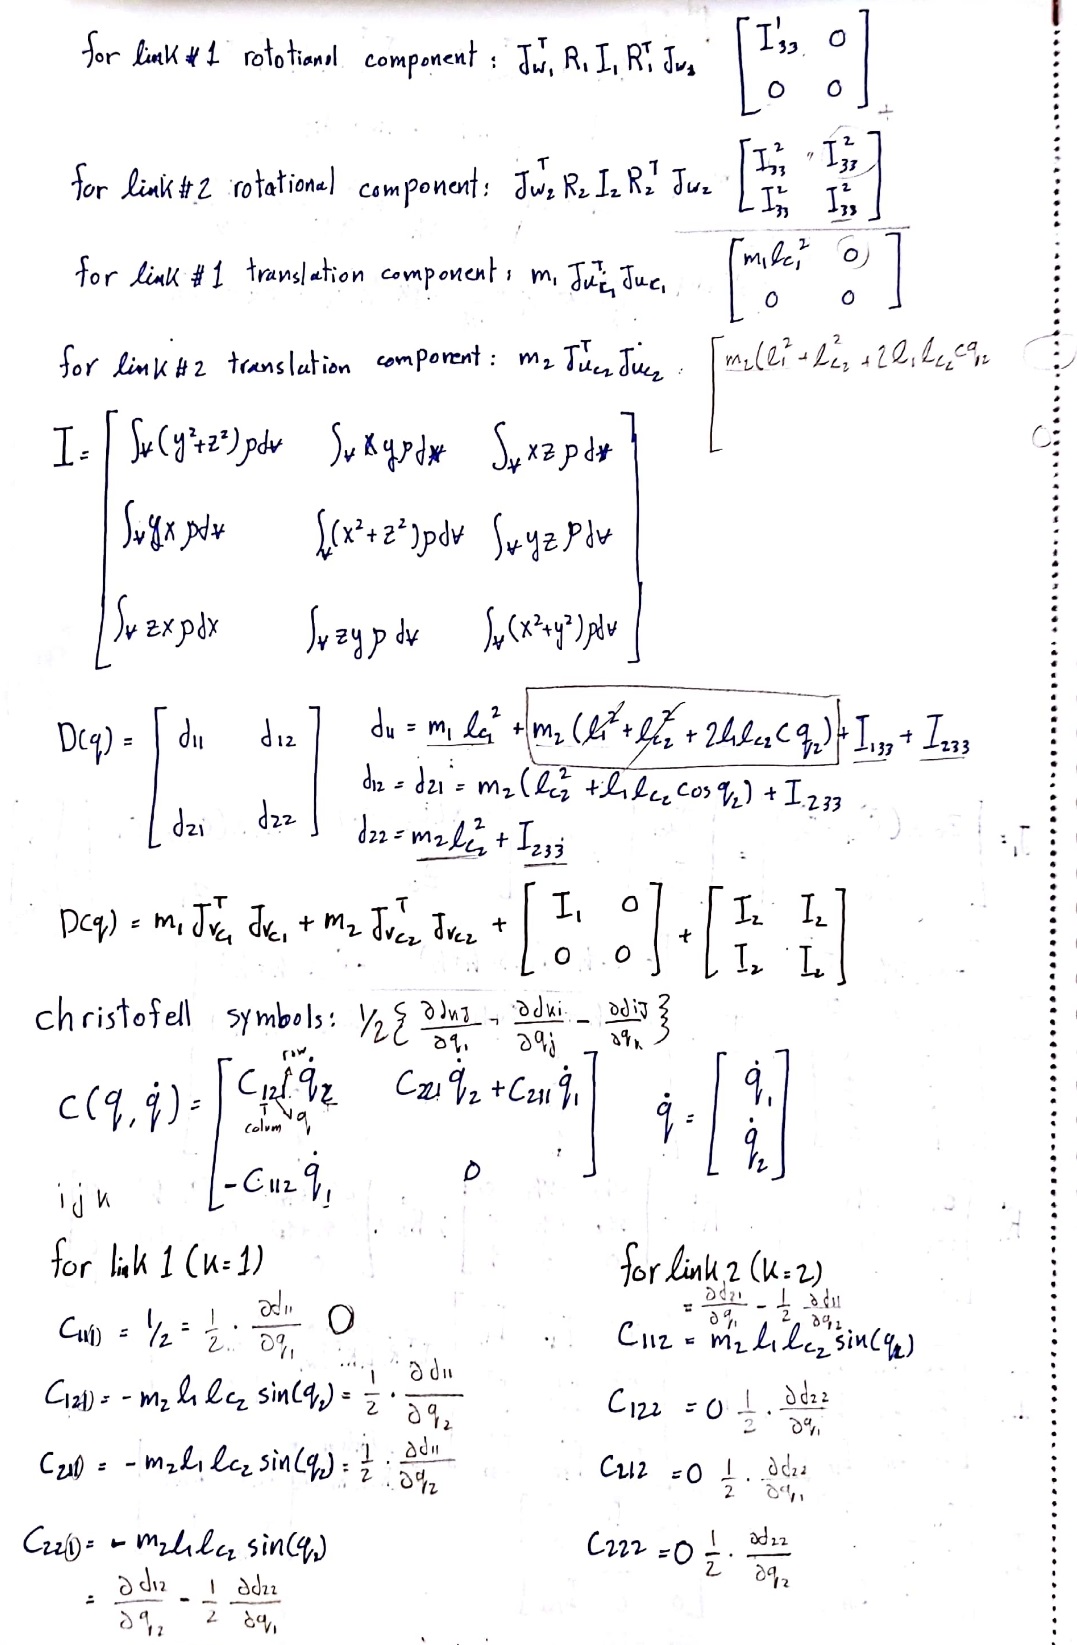 for link #1 rototianal component : Jw₁ᵀ R₁ I₁ R₁ᵀ Jw₁ [I¹₃₃ 0
0 0]
for link #2 rotational component: Jw₂ᵀ R₂ I₂ R₂ᵀ Jw₂ [I²₃₃ I²₃₃
I²₃₃ I²₃₃]
for link #1 translation component: m₁ Jυc₁ᵀ Jυc₁ [m₁lc₁² 0
0 0]
for link #2 translation component: m₂ Jυc₂ᵀ Jυc₂ [m₂(l₁² + lc₂² + 2l₁lc₂cq₂
I = [∫v(y²+z²)ρdv ∫v xyρdv ∫v xzρdv
∫v yxρdv ∫v(x²+z²)ρdv ∫v yzρdv
∫v zxρdx ∫v zyρdv ∫v(x²+y²)ρdv]
D(q) = [d11 d12 d11 = m₁lc₁² + m₂(l₁²+lc₂² + 2l₁lc₂cq₂) + I₁₃₃ + I₂₃₃
d12 = d21 = m₂(lc₂² + l₁lc₂ cos q₂) + I₂₃₃
d21 d22] d22 = m₂lc₂² + I₂₃₃
D(q) = m₁ Jvc₁ᵀ Jvc₁ + m₂ Jvc₂ᵀ Jvc₂ + [I₁ 0 + [I₂ I₂
0 0] I₂ I₂]
christofell symbols: 1/2{∂dkj/∂qi - ∂dki/∂qj - ∂dij/∂qk}
row
C(q,q̇) = [C121 q̇₂ C221 q̇₂ + C211 q̇₁ q̇ = [q̇₁
colum q
-C112 q̇₁ 0] q̇₂]
ijk
for link 1 (k=1) for link 2 (k=2)
= ∂d21/∂q₁ - 1/2 ∂d11/∂q₂
C111 = 1/2 = 1/2 · ∂d11/∂q₁ 0 C112 = m₂l₁lc₂ sin(q₂)
C121 = -m₂l₁lc₂ sin(q₂) = 1/2 · ∂d11/∂q₂ C122 = 0 1/2 · ∂d22/∂q₁
C211 = -m₂l₁lc₂ sin(q₂) = 1/2 · ∂d11/∂q₂ C212 = 0 1/2 · ∂d22/∂q₁
C221 = -m₂l₁lc₂ sin(q₂) C222 = 0 1/2 · ∂d22/∂q₂
= ∂d12/∂q₂ - 1/2 ∂d22/∂q₁